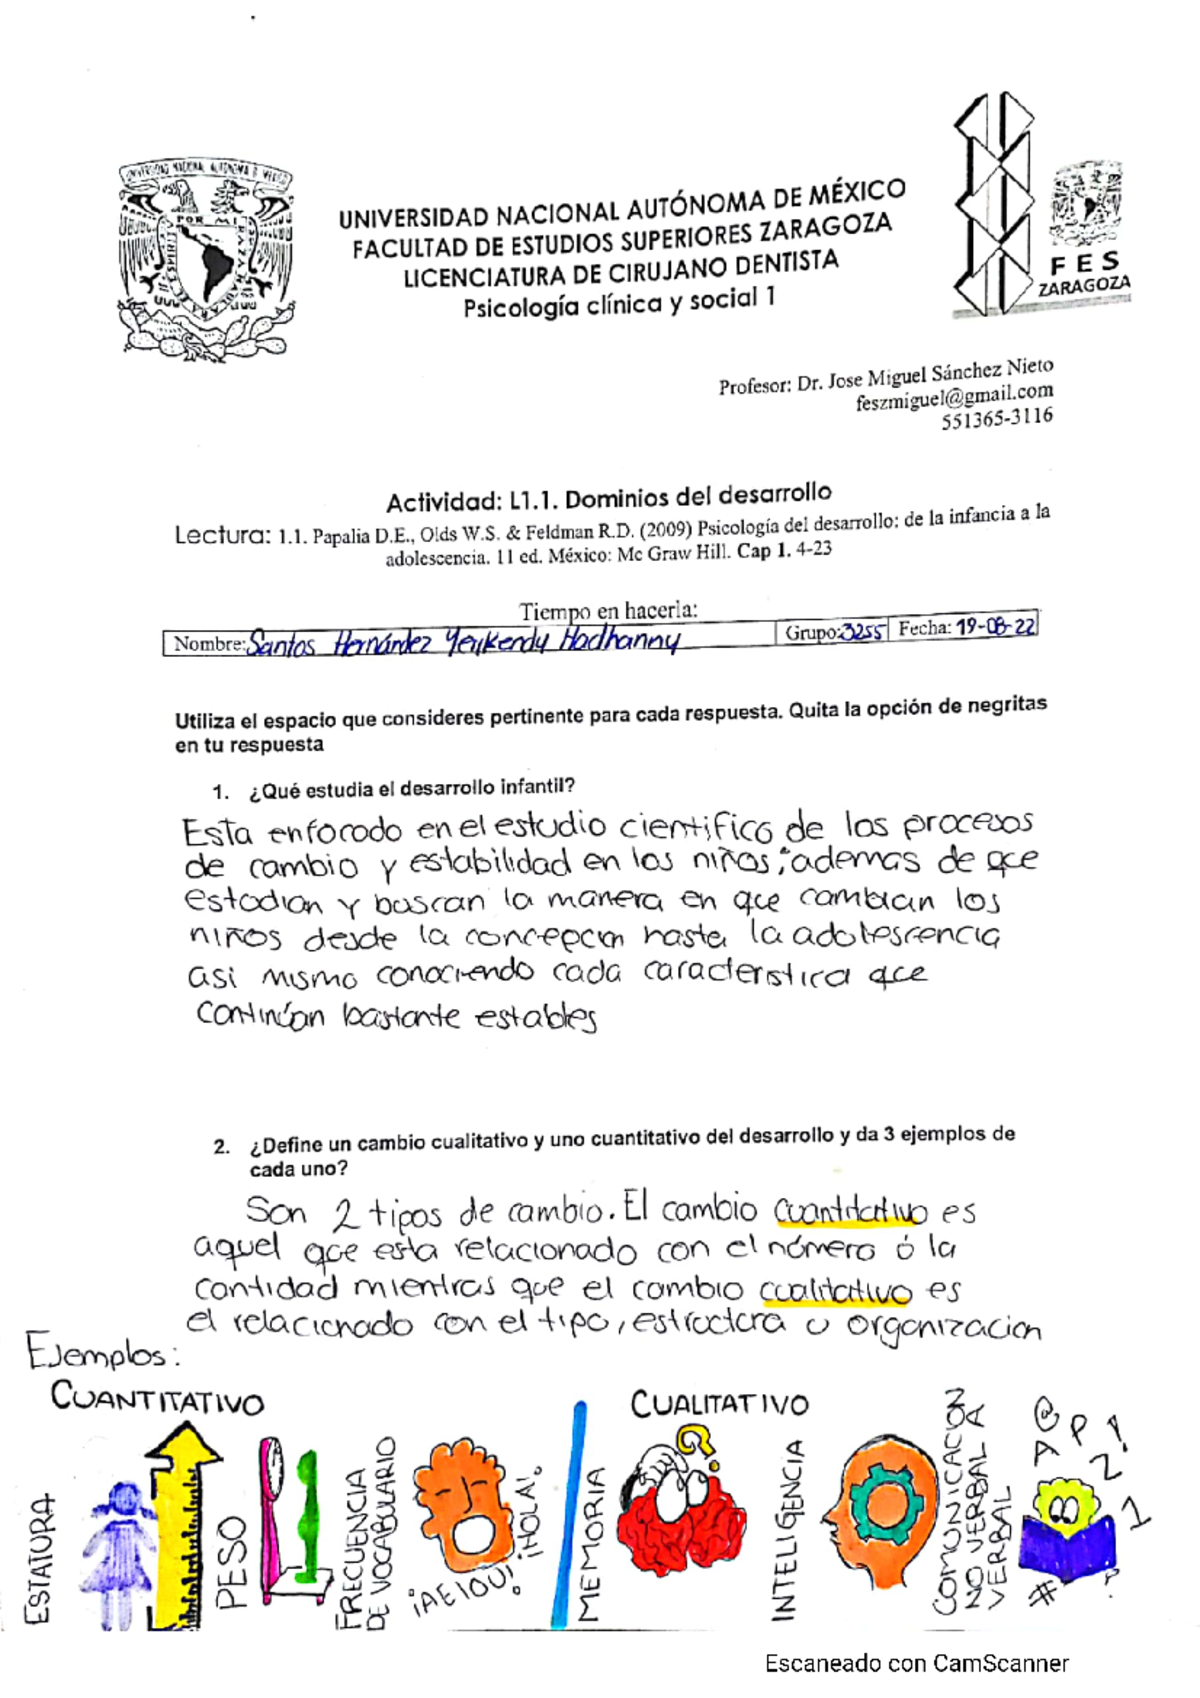 UNIVERSIDAD NACIONAL AUTÓNOMA DE MÉXICO
FACULTAD DE ESTUDIOS SUPERIORES ZARAGOZA
LICENCIATURA DE CIRUJANO DENTISTA
Psicología clínica y social 1
UNIVERSIDAD NACIONAL AUTONOMA DE MEXICO
POR MI RAZA
ESPIRITU
FES
ZARAGOZA
Profesor: Dr. Jose Miguel Sánchez Nieto
feszmiguel@gmail.com
551365-3116
Actividad: L1.1. Dominios del desarrollo
Lectura: 1.1. Papalia D.E., Olds W.S. & Feldman R.D. (2009) Psicología del desarrollo: de la infancia a la
adolescencia. 11 ed. México: Mc Graw Hill. Cap 1. 4-23
Tiempo en hacerla:
Nombre: Santos Hernández Yeukendy Hadhanny Grupo: 3255 Fecha: 19-08-22
Utiliza el espacio que consideres pertinente para cada respuesta. Quita la opción de negritas
en tu respuesta
1. ¿Qué estudia el desarrollo infantil?
Esta enfocado en el estudio cientifico de los procesos
de cambio y estabilidad en los niños; ademas de que
estudian y buscan la manera en que cambian los
niños desde la concepcion hasta la adolescencia
asi mismo conociendo cada caracteristica que
continúan bastante estables
2. ¿Define un cambio cualitativo y uno cuantitativo del desarrollo y da 3 ejemplos de
cada uno?
Son 2 tipos de cambio. El cambio cuantitativo es
aquel que esta relacionado con el número ó la
cantidad mientras que el cambio cualitativo es
el relacionado con el tipo, estructura u organizacion
Ejemplos:
CUANTITATIVO
ESTATURA
PESO
FRECUENCIA
DE VOCABULARIO
¡HOLA!
¡AEIOU!
CUALITATIVO
MEMORIA
?
INTELIGENCIA
COMUNICACION
NO VERBAL A
VERBAL
A @ P ! 2 1
# ?
Escaneado con CamScanner